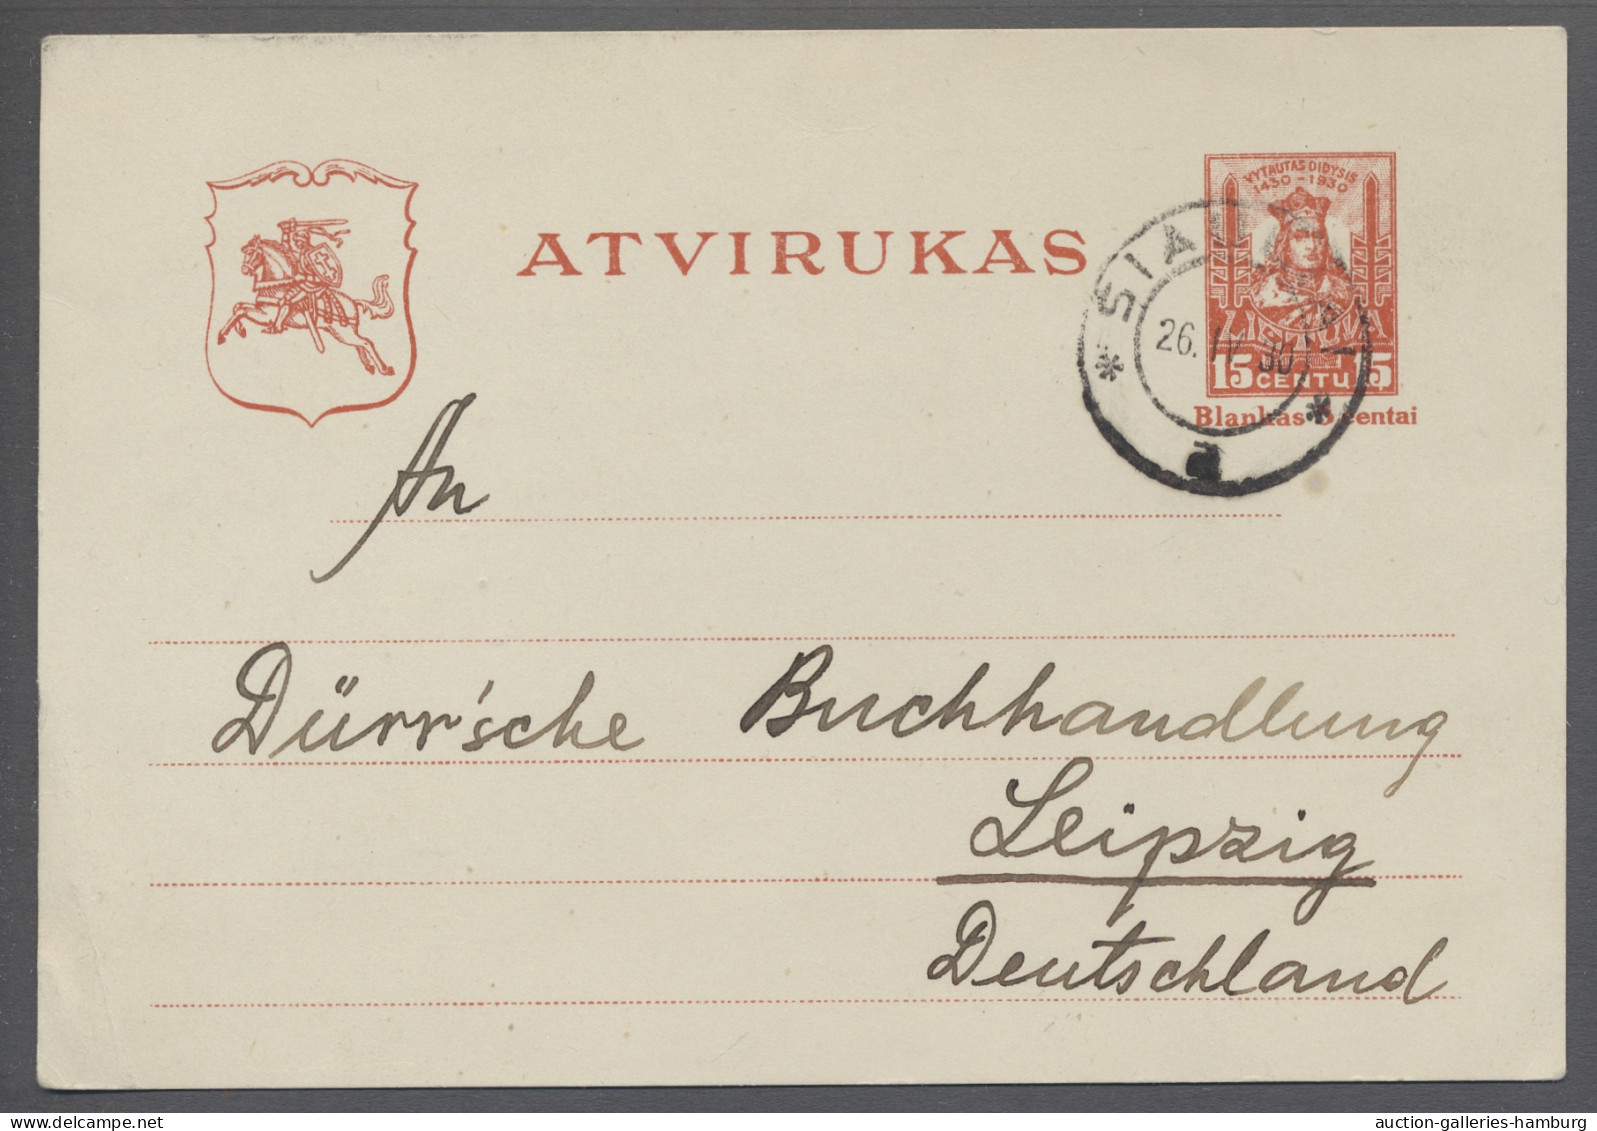 VYTAUTAS DIDYSIS
1430 - 1930
ATVIRUKAS
26. IV 30
LIETUVA
15 CENTŲ 15
Blankas 5 centai
An
Dürr'sche Buchhandlung
Leipzig
Deutschland
auction-galleries-hamburg